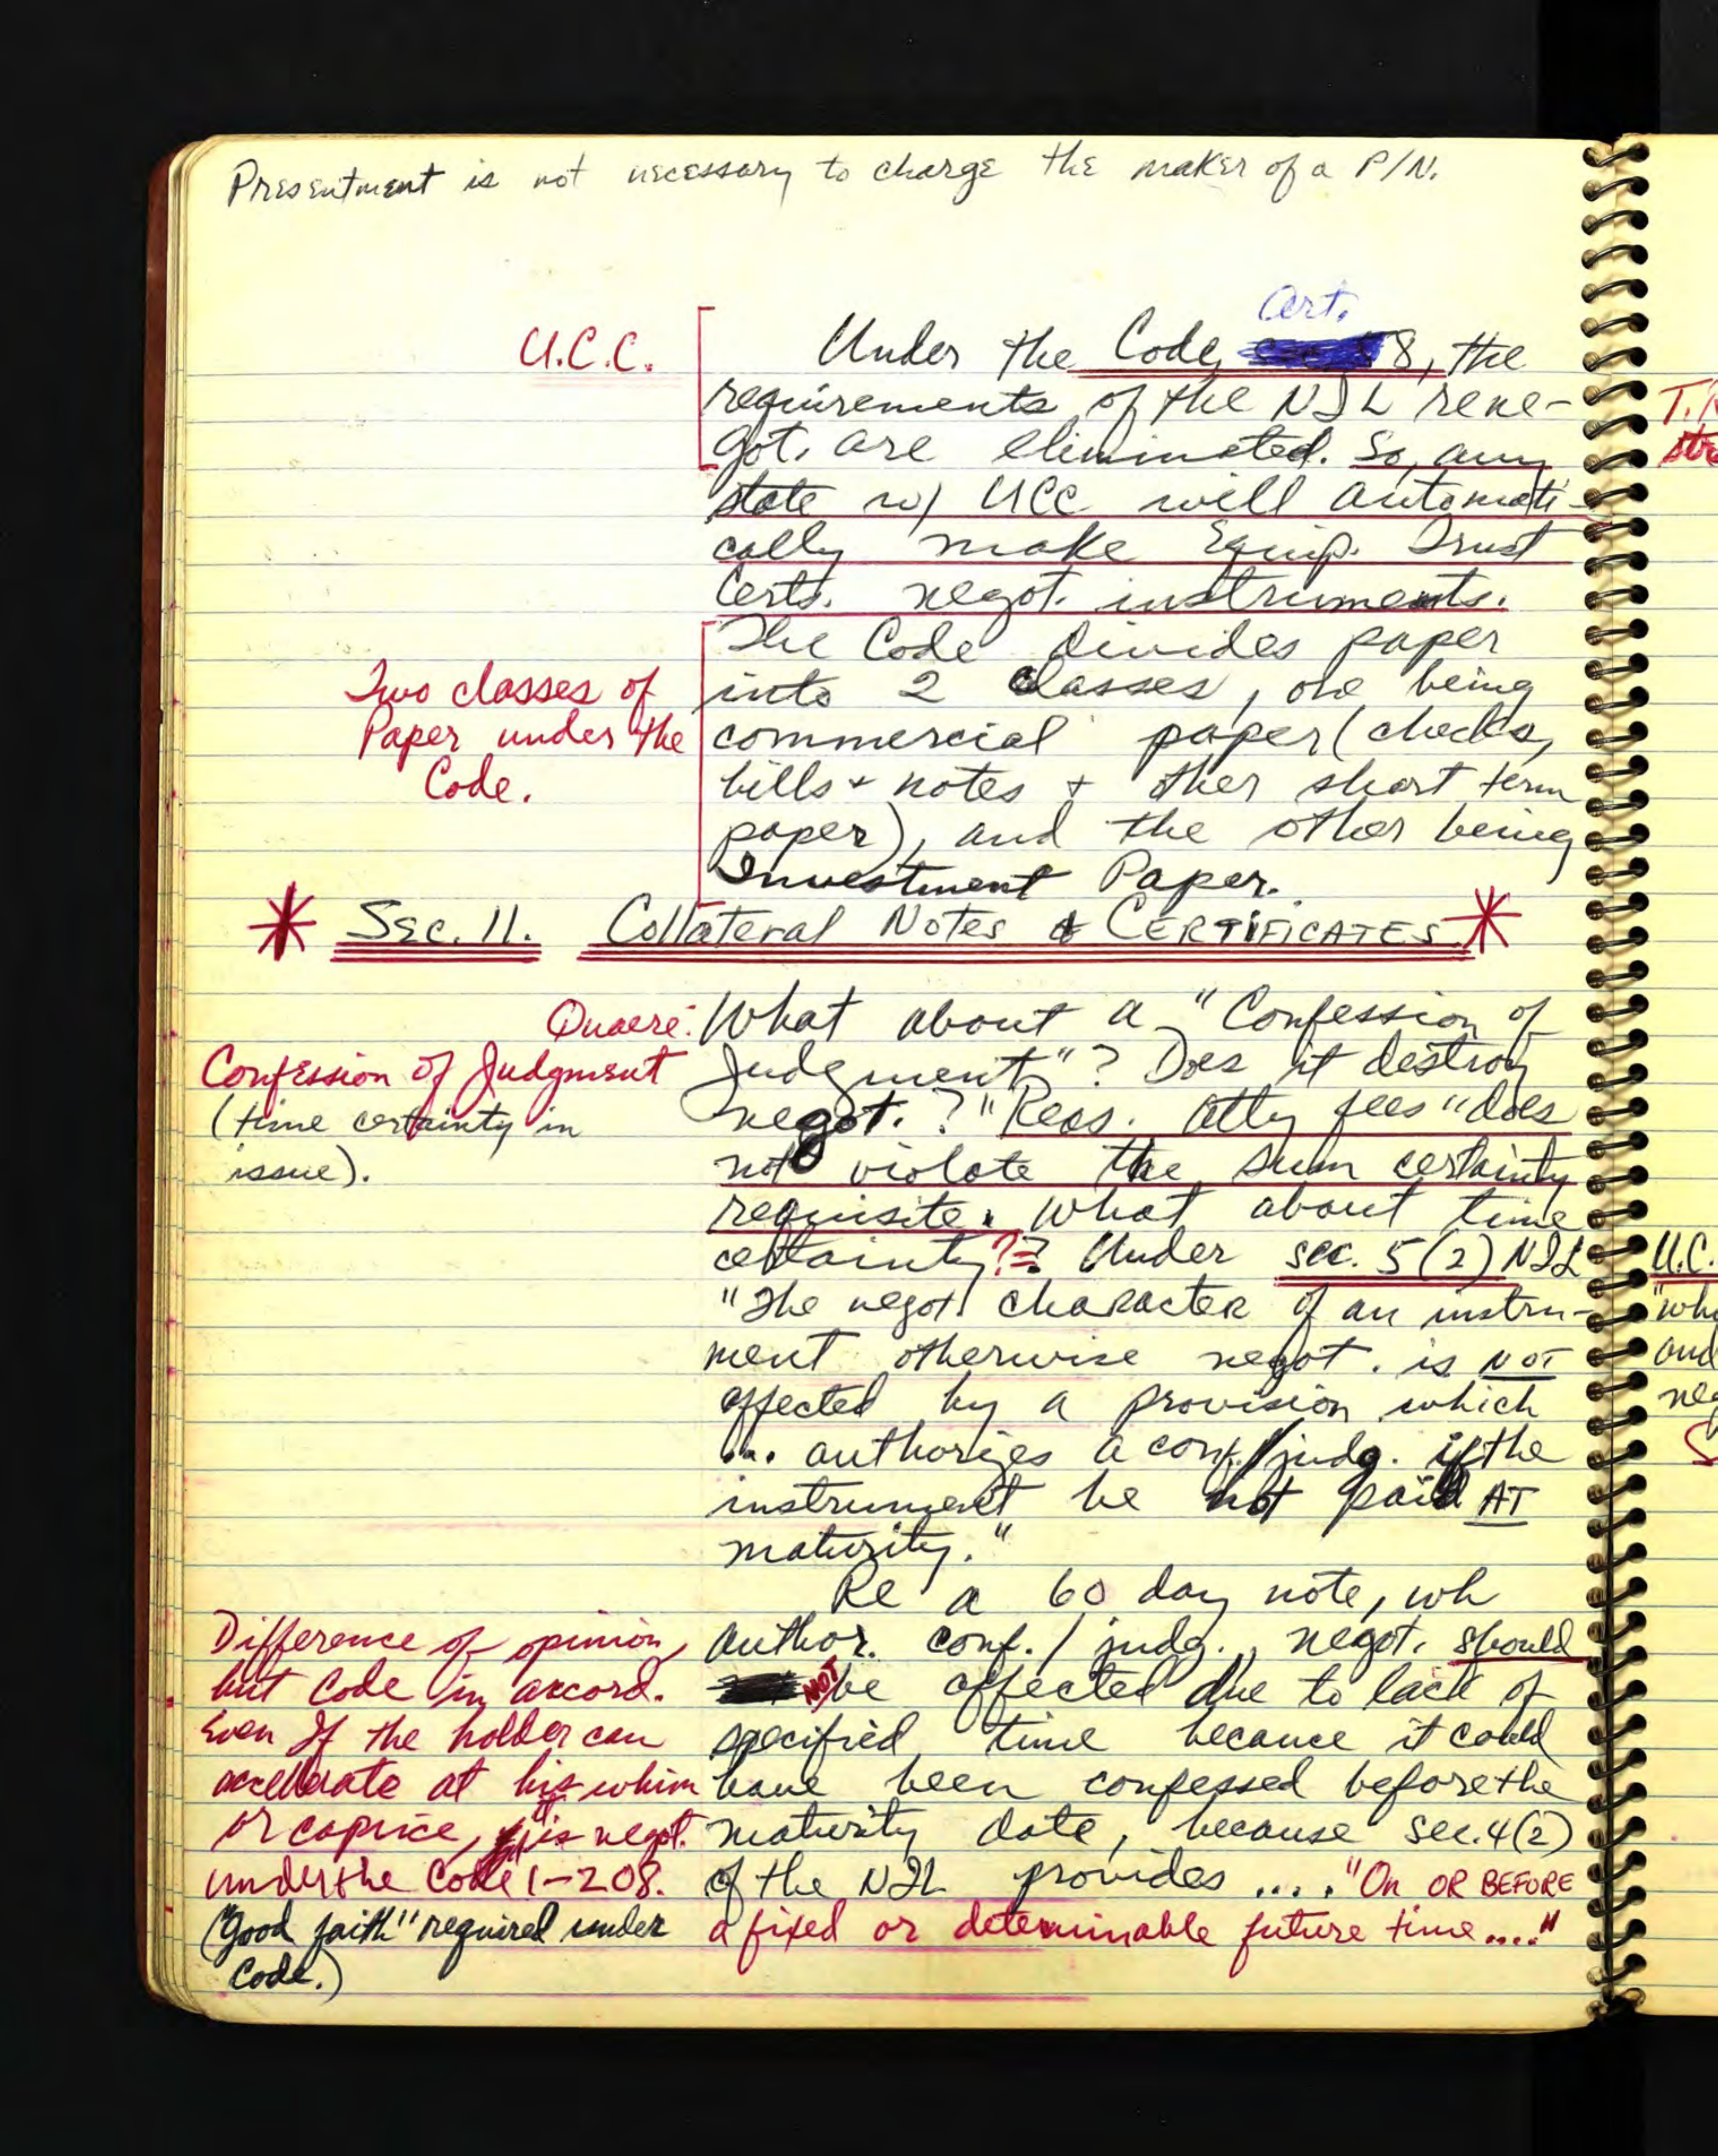 Presentment is not necessary to charge the maker of a P/N.
U.C.C.
Art.
Under the Code, 8, the
requirements of the NIL re ne-
got. are eliminated. So, any
state w/ UCC will automati-
cally make Equip. Trust
Certs. negot. instruments.
Two classes of
Paper under the
Code.
The Code divides paper
into 2 classes, one being
commercial paper (checks,
bills + notes + other short term
paper), and the other being
Investment Paper.
* Sec. 11. Collateral Notes & CERTIFICATES *
Quaere:
Confession of Judgment
(time certainty in
issue).
What about a "Confession of
Judgment"? Does it destroy
negot.? "Reas. atty fees" does
not violate the sum certainty
requisite. What about time
certainty?? Under sec. 5(2) NIL
"The negot. character of an instru-
ment otherwise negot. is NOT
affected by a provision which
... authorizes a conf./judg. if the
instrument be not paid AT
maturity."
Re a 60 day note, wh
author. conf./judg., negot. should
NOT be affected due to lack of
specified time because it could
have been confessed before the
maturity date, because sec. 4(2)
of the NIL provides .... "On OR BEFORE
a fixed or determinable future time...."
Difference of opinion,
but Code in accord.
Even If the holder can
accellerate at his whim
or caprice, it is negot.
under the Code 1-208.
("Good faith" required under
Code.)
U.C.
"who
and
neg